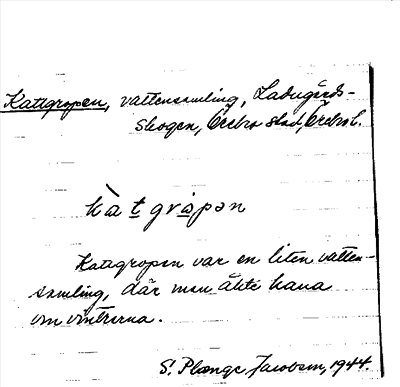 Kattgropen, vattensamling, Ladugårds-
skogen, Örebro stad, Örebro l.
kàt gråpan
Kattgropen var en liten vatten-
samling, där man åkte kana
om vintrarna.
S. Plænge Jacobson, 1944.